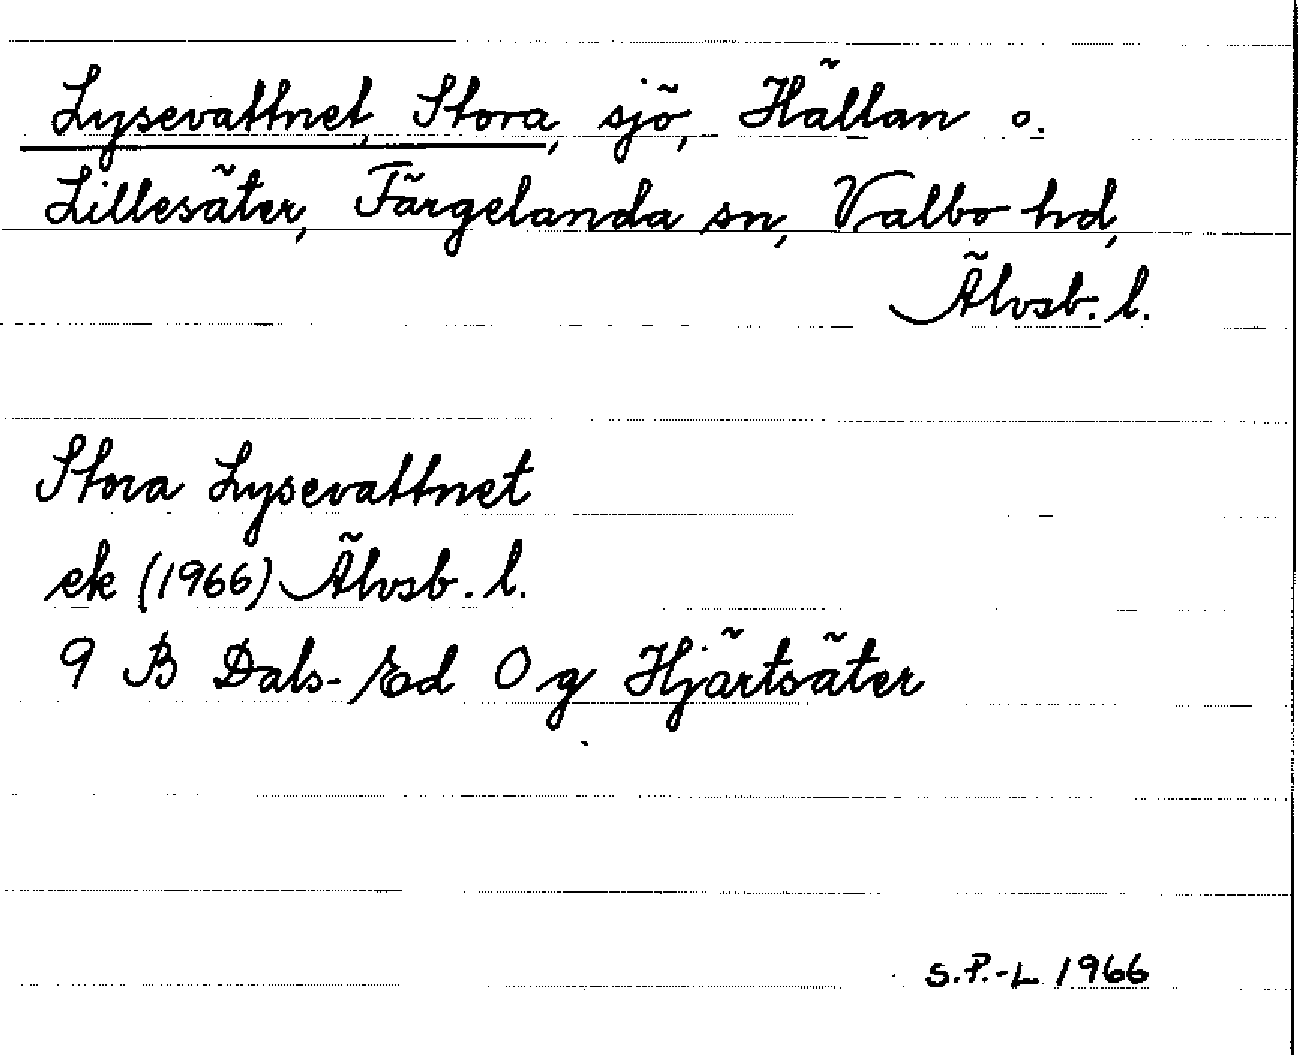 Lysevattnet, Stora, sjö, Hällan o.
Lillesäter, Färgelanda sn, Valbo hd,
Älvsb. l.
Stora Lysevattnet
ek (1966) Älvsb. l.
9 B Dals-Ed 0 g Hjärtsäter
S.P.-L 1966